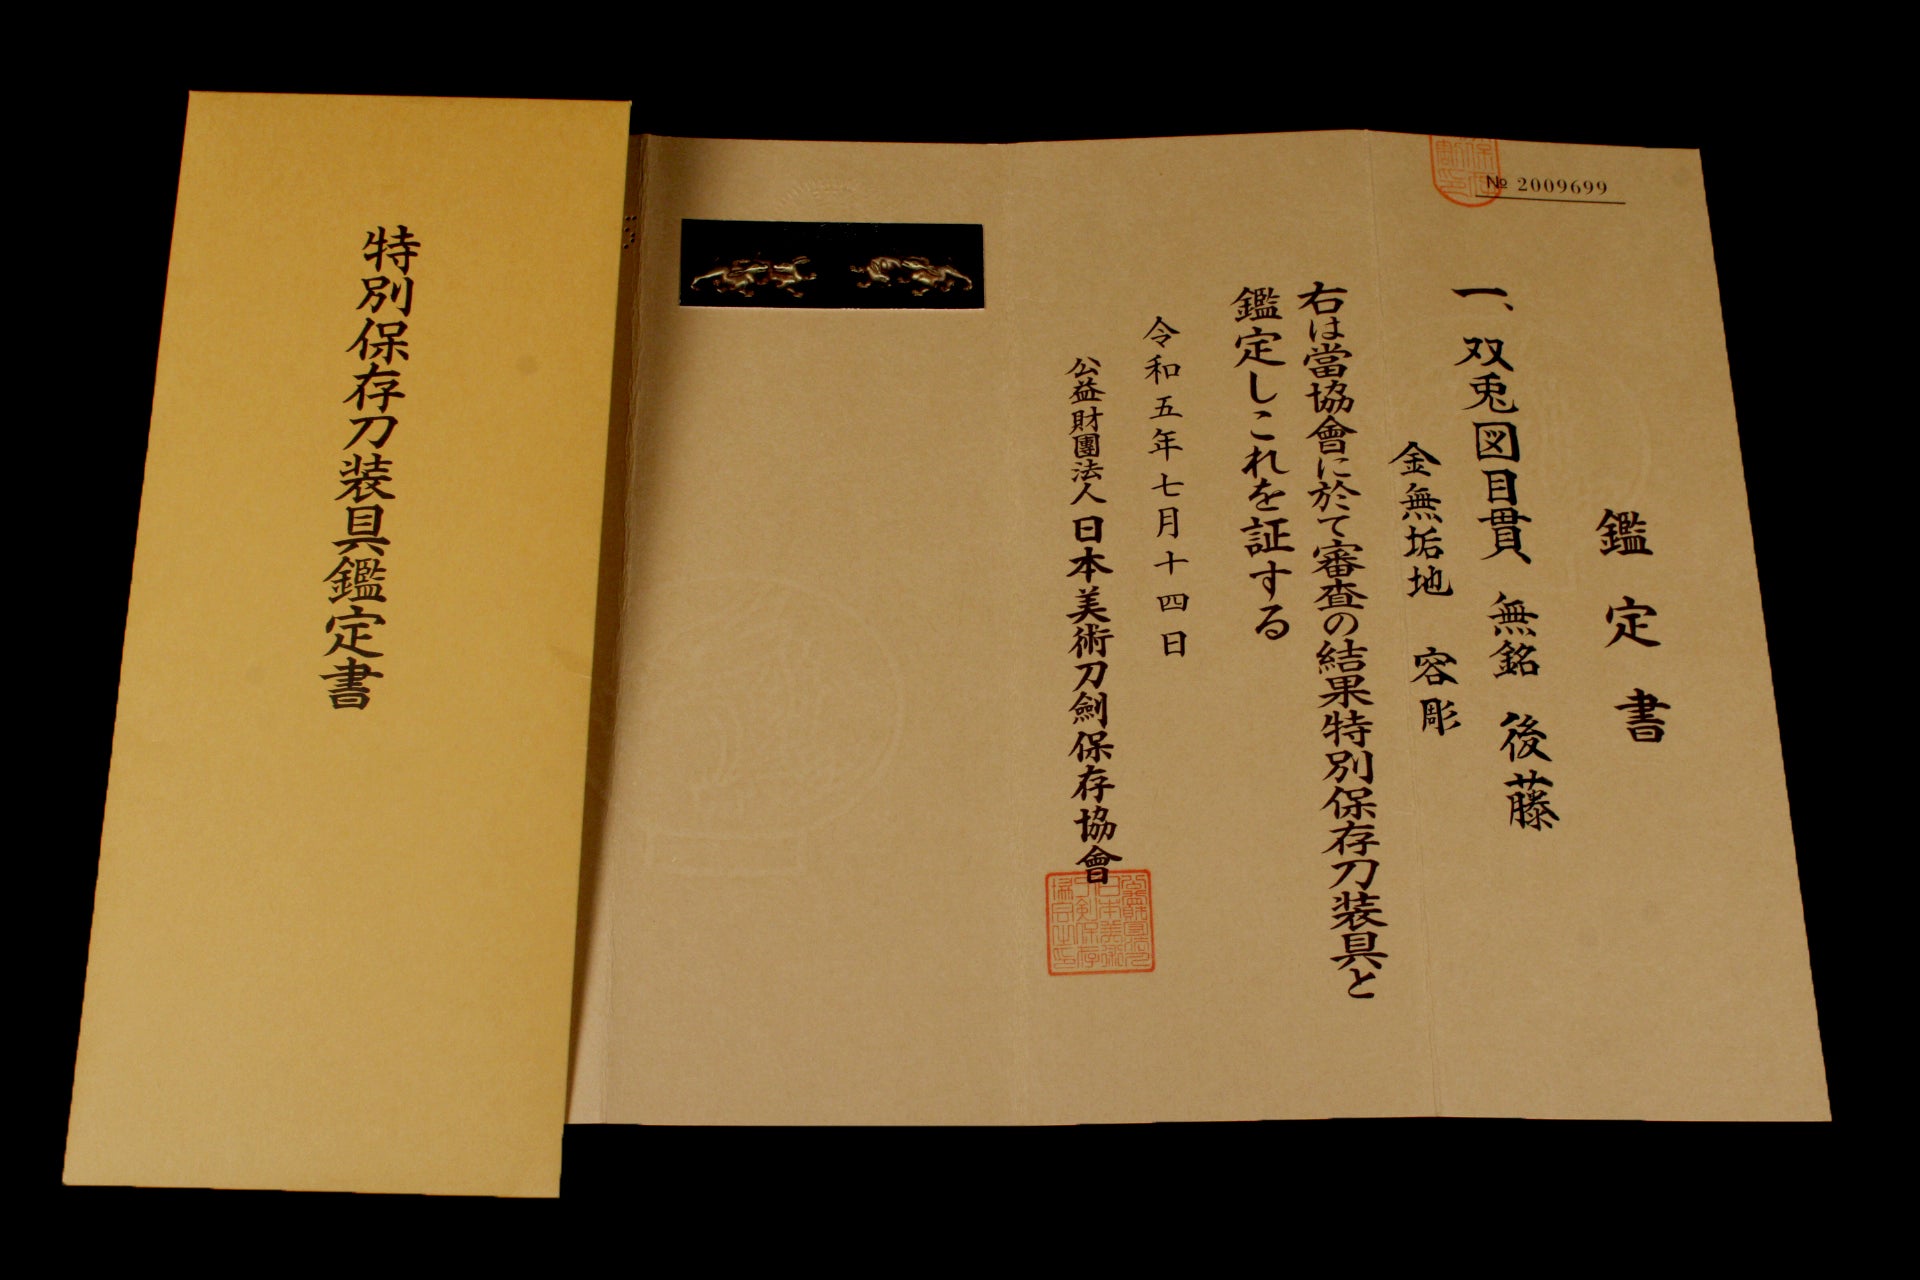 特別保存刀装具鑑定書
№ 2009699
鑑定書
一、双兎図目貫 無銘 後藤
金無垢地 容彫
右は當協會に於て審査の結果特別保存刀装具と
鑑定しこれを証する
令和五年七月十四日
公益財團法人日本美術刀劍保存協會